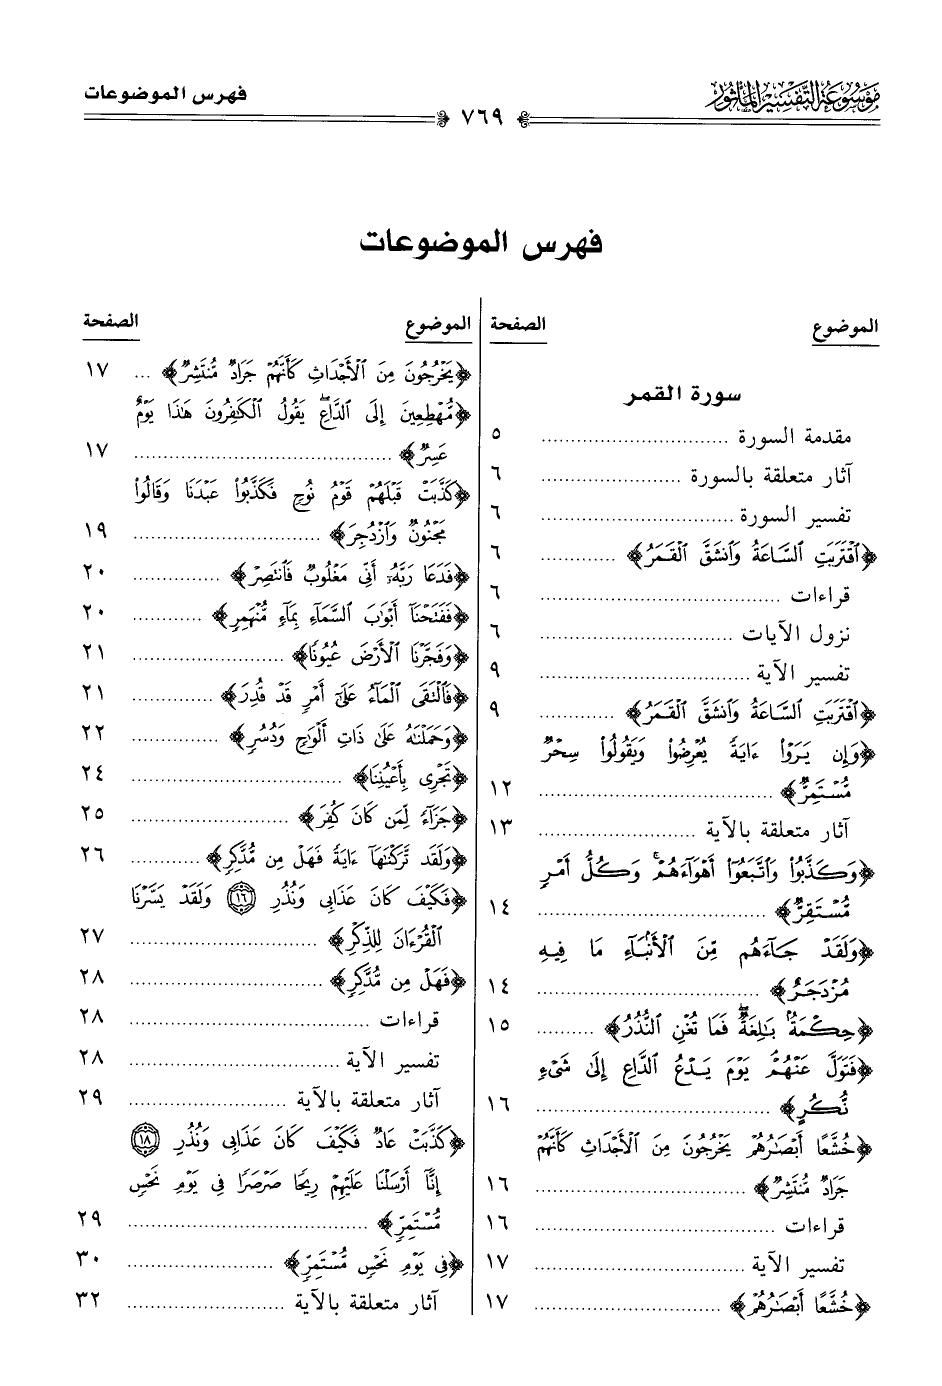 موسوعة التفسير المأثور
فهرس الموضوعات
٧٦٩
فهرس الموضوعات
الموضوع الصفحة
سورة القمر
مقدمة السورة ............................ ٥
آثار متعلقة بالسورة ..................... ٦
تفسير السورة ............................ ٦
﴿ٱقْتَرَبَتِ ٱلسَّاعَةُ وَٱنشَقَّ ٱلْقَمَرُ﴾ ........... ٦
قراءات .................................... ٦
نزول الآيات ............................. ٦
تفسير الآية ............................... ٩
﴿ٱقْتَرَبَتِ ٱلسَّاعَةُ وَٱنشَقَّ ٱلْقَمَرُ﴾ ........... ٩
﴿وَإِن يَرَوْا۟ ءَايَةً يُعْرِضُوا۟ وَيَقُولُوا۟ سِحْرٌ
مُّسْتَمِرٌّ﴾ ................................... ١٢
آثار متعلقة بالآية ....................... ١٣
﴿وَكَذَّبُوا۟ وَٱتَّبَعُوٓا۟ أَهْوَآءَهُمْ ۚ وَكُلُّ أَمْرٍ
مُّسْتَقِرٌّ﴾ .................................. ١٤
﴿وَلَقَدْ جَآءَهُم مِّنَ ٱلْأَنۢبَآءِ مَا فِيهِ
مُزْدَجَرٌ﴾ ................................. ١٤
﴿حِكْمَةٌۢ بَـٰلِغَةٌ ۖ فَمَا تُغْنِ ٱلنُّذُرُ﴾ ......... ١٥
﴿فَتَوَلَّ عَنْهُمْ ۘ يَوْمَ يَدْعُ ٱلدَّاعِ إِلَىٰ شَىْءٍ
نُّكُرٍ﴾ ................................... ١٦
﴿خُشَّعًا أَبْصَـٰرُهُمْ يَخْرُجُونَ مِنَ ٱلْأَجْدَاثِ كَأَنَّهُمْ
جَرَادٌ مُّنتَشِرٌ﴾ ............................... ١٦
قراءات .................................... ١٦
تفسير الآية ............................... ١٧
﴿خُشَّعًا أَبْصَـٰرُهُمْ﴾ ............................ ١٧
الموضوع الصفحة
﴿يَخْرُجُونَ مِنَ ٱلْأَجْدَاثِ كَأَنَّهُمْ جَرَادٌ مُّنتَشِرٌ﴾ ... ١٧
﴿مُّهْطِعِينَ إِلَى ٱلدَّاعِ ۖ يَقُولُ ٱلْكَـٰفِرُونَ هَـٰذَا يَوْمٌ
عَسِرٌ﴾ ....................................... ١٧
﴿كَذَّبَتْ قَبْلَهُمْ قَوْمُ نُوحٍ فَكَذَّبُوا۟ عَبْدَنَا وَقَالُوا۟
مَجْنُونٌ وَٱزْدُجِرَ﴾ ............................ ١٩
﴿فَدَعَا رَبَّهُۥٓ أَنِّى مَغْلُوبٌ فَٱنتَصِرْ﴾ ............. ٢٠
﴿فَفَتَحْنَآ أَبْوَٰبَ ٱلسَّمَآءِ بِمَآءٍ مُّنْهَمِرٍ﴾ ........... ٢٠
﴿وَفَجَّرْنَا ٱلْأَرْضَ عُيُونًا﴾ ....................... ٢١
﴿فَٱلْتَقَى ٱلْمَآءُ عَلَىٰٓ أَمْرٍ قَدْ قُدِرَ﴾ ............ ٢١
﴿وَحَمَلْنَـٰهُ عَلَىٰ ذَاتِ أَلْوَٰحٍ وَدُسُرٍ﴾ ............. ٢٢
﴿تَجْرِى بِأَعْيُنِنَا﴾ ................................ ٢٤
﴿جَزَآءً لِّمَن كَانَ كُفِرَ﴾ ........................ ٢٥
﴿وَلَقَد تَّرَكْنَـٰهَآ ءَايَةً فَهَلْ مِن مُّدَّكِرٍ﴾ ........... ٢٦
﴿فَكَيْفَ كَانَ عَذَابِى وَنُذُرِ ١٦ وَلَقَدْ يَسَّرْنَا
ٱلْقُرْءَانَ لِلذِّكْرِ﴾ ............................ ٢٧
﴿فَهَلْ مِن مُّدَّكِرٍ﴾ ............................ ٢٨
قراءات .................................... ٢٨
تفسير الآية ............................... ٢٨
آثار متعلقة بالآية ....................... ٢٩
﴿كَذَّبَتْ عَادٌ فَكَيْفَ كَانَ عَذَابِى وَنُذُرِ ١٨
إِنَّآ أَرْسَلْنَا عَلَيْهِمْ رِيحًا صَرْصَرًا فِى يَوْمِ نَحْسٍ
مُّسْتَمِرٍّ﴾ .................................... ٢٩
﴿فِى يَوْمِ نَحْسٍ مُّسْتَمِرٍّ﴾ ...................... ٣٠
آثار متعلقة بالآية ....................... ٣٢